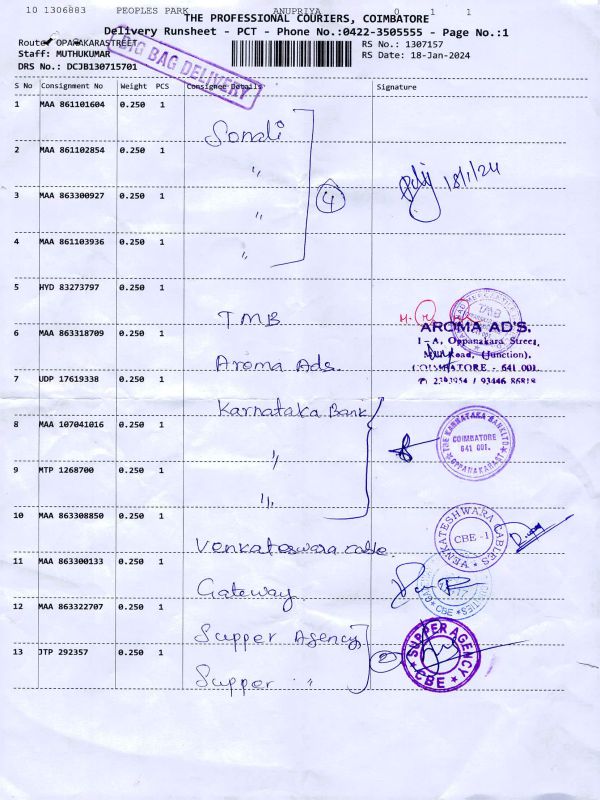 10 1306883 PEOPLES PARK ANUPRIYA 0 1 1
THE PROFESSIONAL COURIERS, COIMBATORE
Delivery Runsheet - PCT - Phone No.:0422-3505555 - Page No.:1
Route: OPANAKARASTREET
RS No.: 1307157
Staff: MUTHUKUMAR
RS Date: 18-Jan-2024
DRS No.: DCJB130715701
BIG BAG DELIVERY
S No Consignment No Weight PCS Consignee Details Signature
1 MAA 861101604 0.250 1 Sonali
2 MAA 861102854 0.250 1 "
4
18/1/24
3 MAA 863300927 0.250 1 "
4 MAA 861103936 0.250 1 "
5 HYD 83273797 0.250 1 TMB
6 MAA 863318709 0.250 1 Aroma Ads.
AROMA AD'S.
1-A, Oppanakara Street,
Mill Road, (Junction).
COIMBATORE - 641 001.
7 UDP 17619338 0.250 1 Karnataka Bank
8 MAA 107041016 0.250 1 "
THE KARNATAKA BANK LTD
COIMBATORE
641 001.
OPPANAKARA ST
9 MTP 1268700 0.250 1 "
10 MAA 863308850 0.250 1 Venkateswara cable.
VENKATESHWARA CABLES
CBE -1
11 MAA 863300133 0.250 1 Gateway
CBE
12 MAA 863322707 0.250 1 Supper Agency
2
SUPPER AGENCY
CBE
13 JTP 292357 0.250 1 Supper "